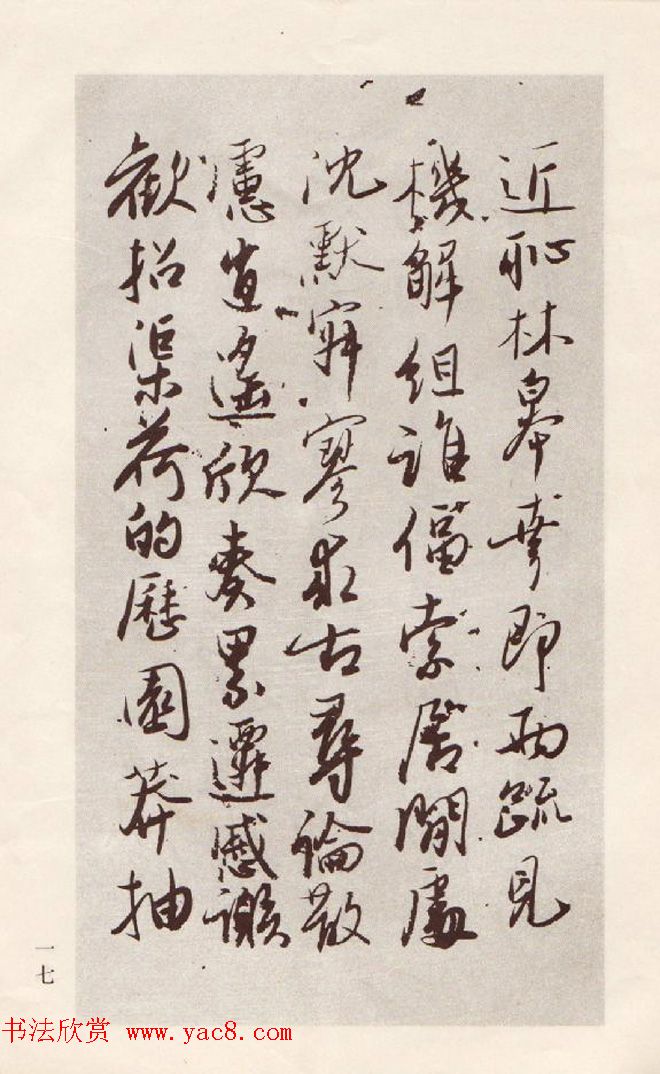 近恥林皋幸即兩疏見
機解組誰偪索居閒處
沈默寂寥求古尋論散
慮逍遙欣奏累遣慼謝
歡招渠荷的歷園莽抽
一七
书法欣赏 www.yac8.com